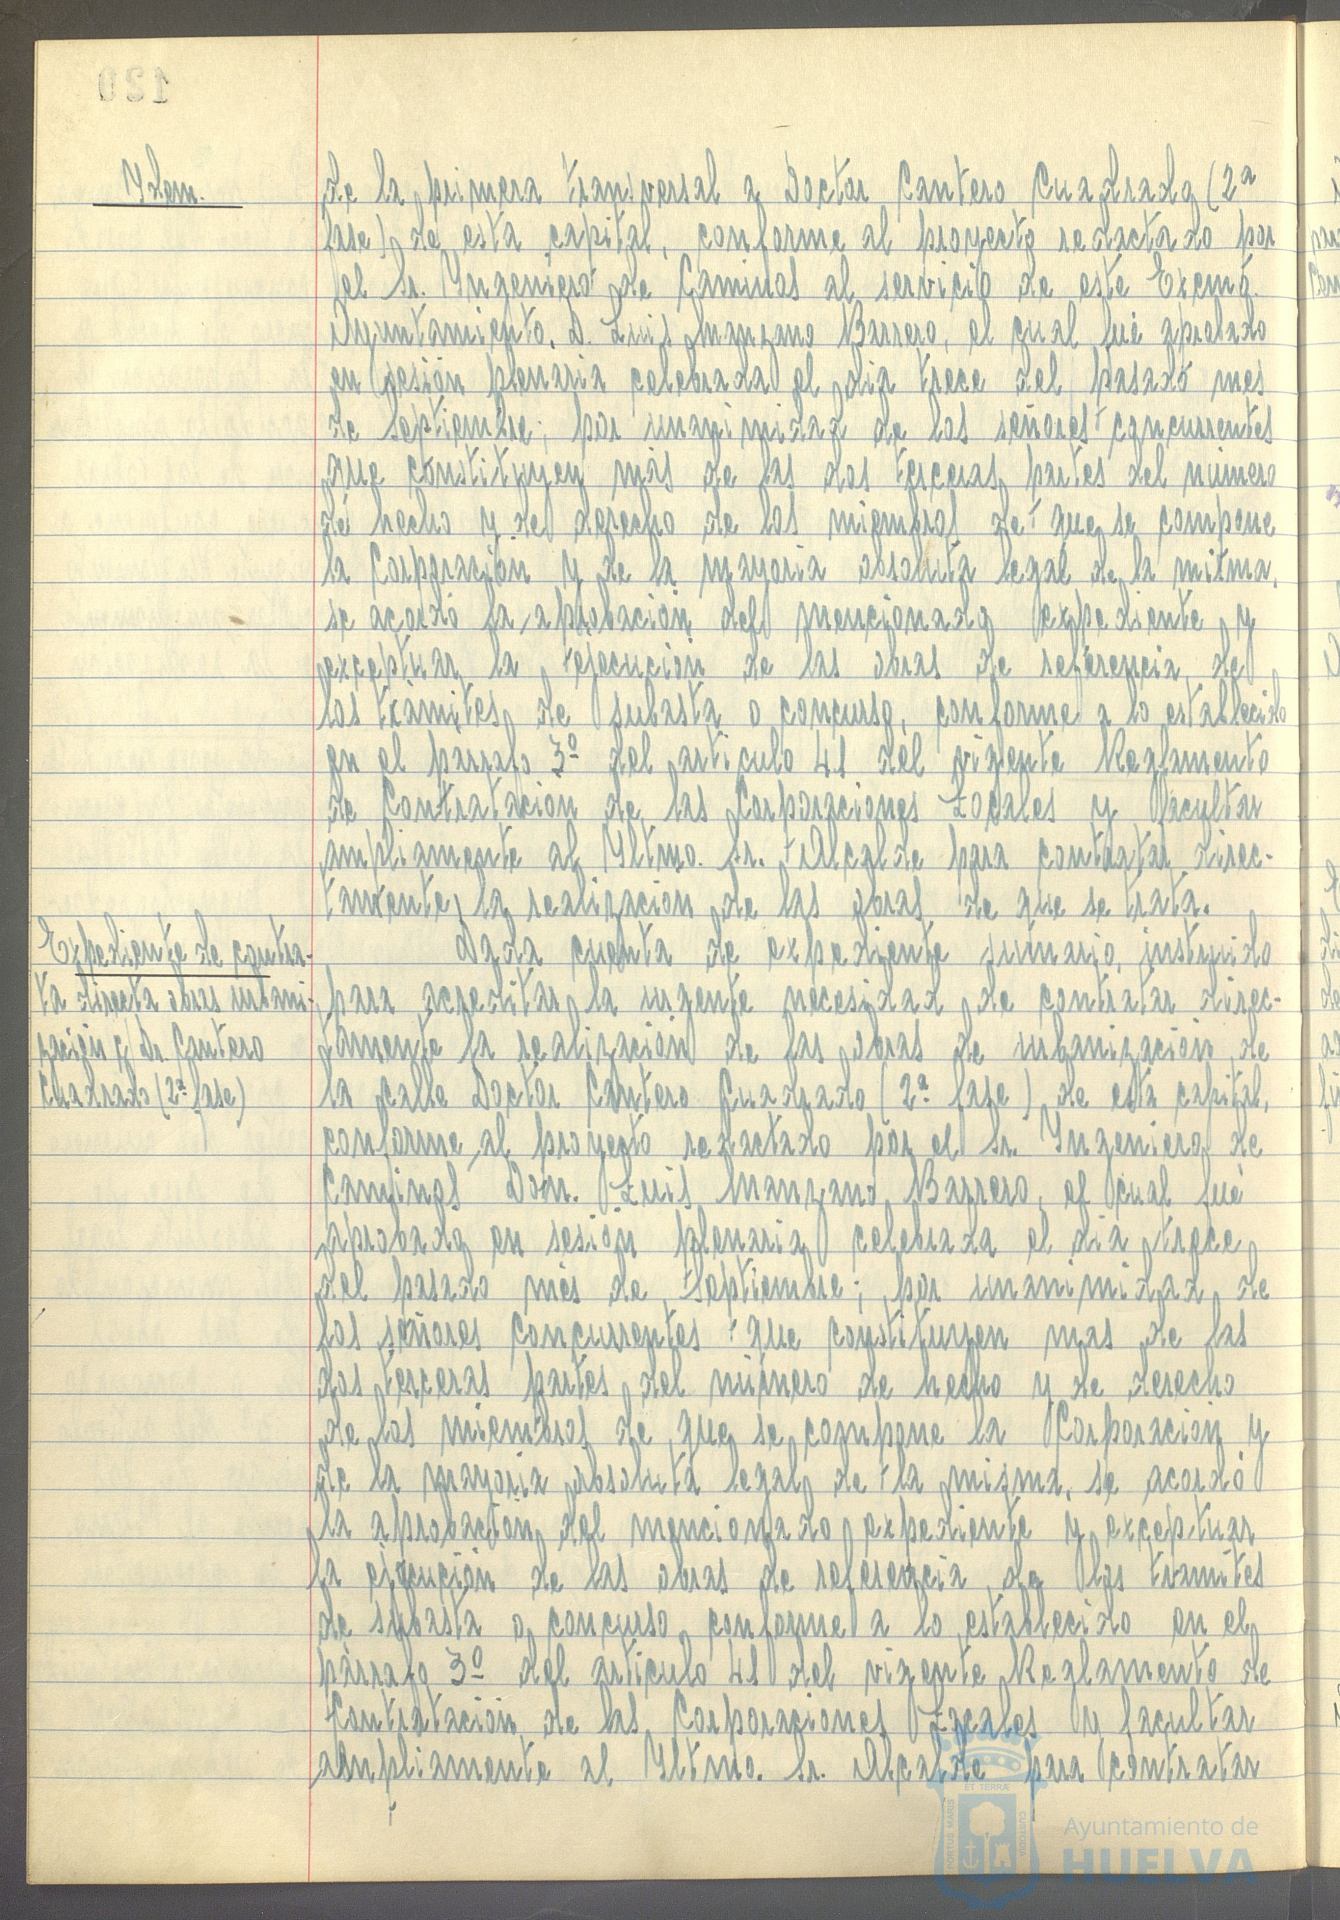 Ydem.
de la primera transversal a Doctor Cantero Cuadrado (2ª
fase) de esta capital, conforme al proyecto redactado por
el Sr. Yngeniero de Caminos al servicio de este Excmo.
Ayuntamiento, D. Luis Manzano Barrero, el cual fué aprobado
en sesión plenaria celebrada el dia trece del pasado mes
de septiembre; por unanimidad de los señores concurrentes
que constituyen más de las dos terceras partes del número
de hecho y de derecho de los miembros de que se compone
la Corporación y de la mayoria absoluta legal de la misma,
se acordó la aprobación del mencionado expediente y
exceptuar la ejecución de las obras de referencia de
los trámites de subasta o concurso, conforme a lo establecido
en el parrafo 3º del articulo 41 del vigente Reglamento
de Contratación de las Corporaciones Locales y facultar
ampliamente al Yltmo. Sr. Alcalde para contratar direc-
tamente la realización de las obras de que se trata.
Expediente de contra-
ta directa obras urbani-
zación c/ Dr. Cantero
Cuadrado (2ª fase)
Dada cuenta de expediente sumario, instruido
para acreditar la urgente necesidad de contratar direc-
tamente la realización de las obras de urbanización de
la calle Doctor Cantero Cuadrado (2ª fase) de esta capital,
conforme al proyecto redactado por el Sr. Yngeniero de
Caminos Don. Luis Manzano Barrero, el cual fué
aprobado en sesión plenaria celebrada el dia trece
del pasado mes de septiembre; por unanimidad de
los señores concurrentes que constituyen mas de las
dos terceras partes del número de hecho y de derecho
de los miembros de que se compone la Corporación y
de la mayoria absoluta legal de la misma, se acordó
la aprobación del mencionado expediente y exceptuar
la ejecución de las obras de referencia de los tramites
de subasta o concurso conforme a lo establecido en el
párrafo 3º del articulo 41 del vigente Reglamento de
Contratación de las Corporaciones Locales y facultar
ampliamente al Yltmo. Sr. Alcalde para contratar
ET TERRÆ
PORTUS MARIS
CUSTODIA
Ayuntamiento de
HUELVA